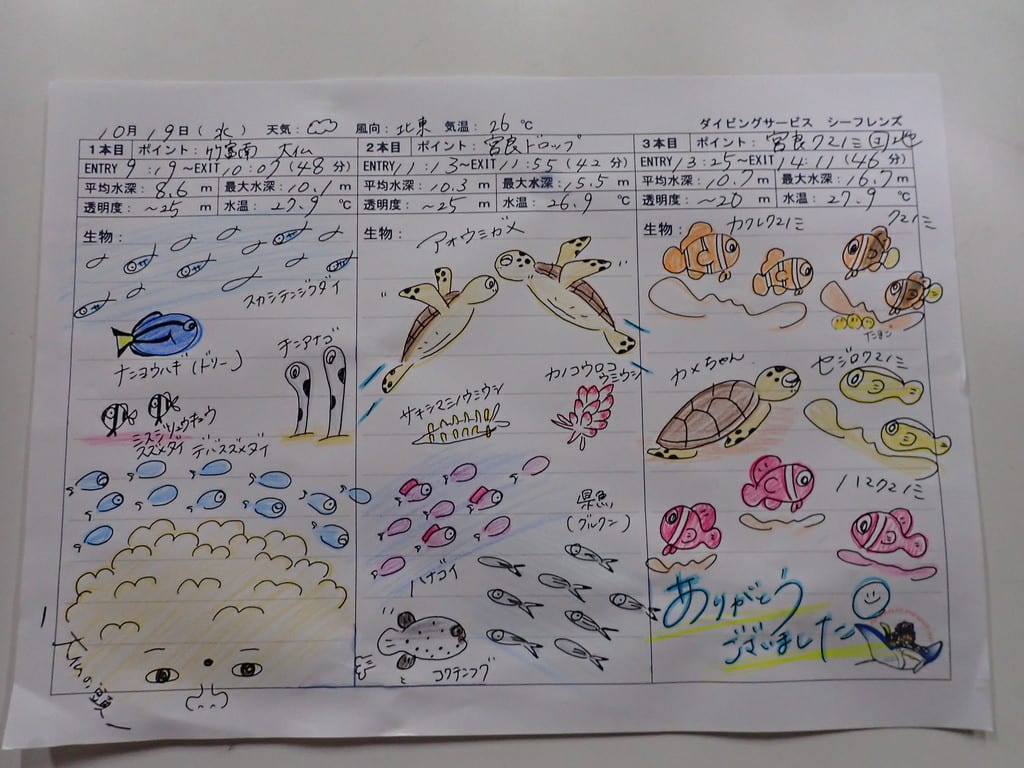 10月19日(水) 天気: 風向: 北東 気温: 26 ℃ ダイビングサービス シーフレンズ
1本目 ポイント: 竹富南 大仏
ENTRY 9:19～EXIT 10:07(48分)
平均水深: 8.6 m 最大水深: 10.1 m
透明度: ～25 m 水温: 27.9 ℃
生物:
スカシテンジクダイ
ナンヨウハギ(ドリー)
チンアナゴ
ミスジリュウキュウ
スズメダイ
デバスズメダイ
大仏の頭
2本目 ポイント: 宮良ドロップ
ENTRY 11:13～EXIT 11:55(42分)
平均水深: 10.3 m 最大水深: 15.5 m
透明度: ～25 m 水温: 26.9 ℃
生物:
アオウミガメ
サキシマミノウミウシ
カノコウロコ
ウミウシ
県魚
(グルクン)
ハナゴイ
コクテンフグ
3本目 ポイント: 宮良クマノミ団地
ENTRY 13:25～EXIT 14:11(46分)
平均水深: 10.7 m 最大水深: 16.7 m
透明度: ～20 m 水温: 27.9 ℃
生物:
カクレクマノミ
クマノミ
たまご
カメちゃん
セジロクマノミ
ハマクマノミ
ありがとう
ございました